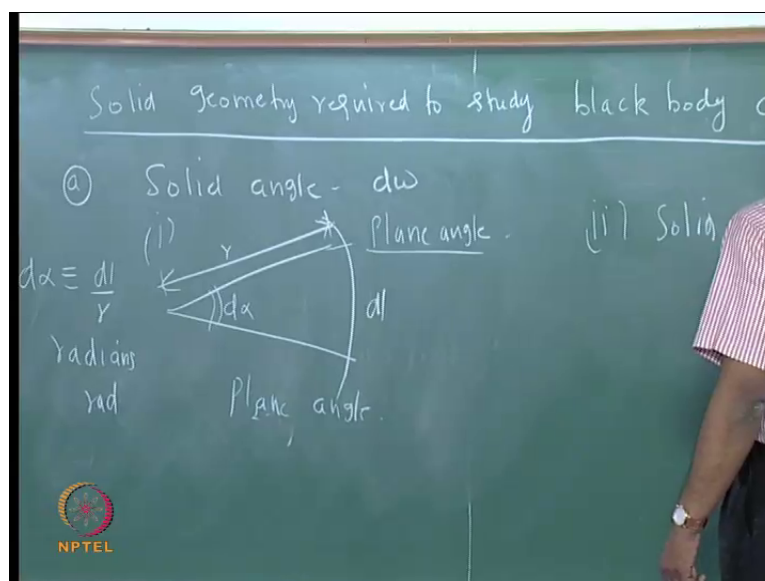 Solid geometry required to study black body
(a) Solid angle - dω
(i)
r
Plane angle.
dα ≡ dl/r
dα
dl
radians
rad
Plane angle.
(ii) Solid
NPTEL